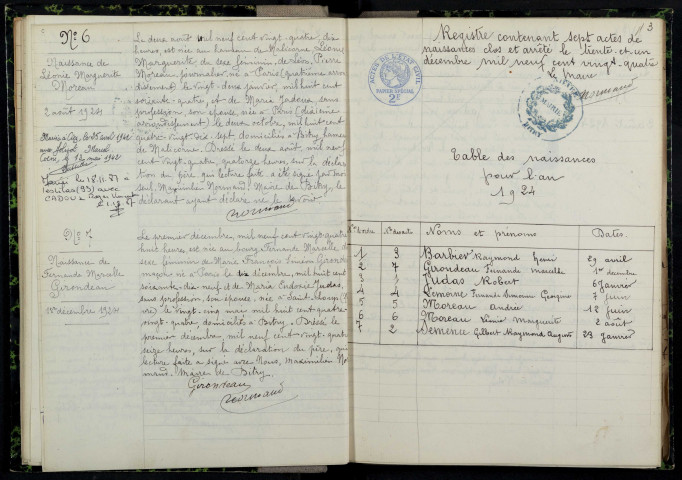 N° 6
Naissance de
Léonie Marguerite
Moreau
2 août 1924
Le deux août mil neuf cent vingt-quatre, dix
heures, est née au hameau de Malicorne, Léonie
Marguerite, du sexe féminin, de Léon, Pierre
Moreau, journalier né à Paris (quatrième arron
dissement) le vingt-deux janvier, mil huit cent
soixante-quatre, et de Maria Jadoux, sans
profession, son épouse, née à Paris (dixième
arrondissement) le deux octobre, mil huit cent
quatre-vingt-dix-sept, domiciliés à Bitry, hameau
de Malicorne. Dressé le deux août, mil neuf
cent vingt-quatre, quatorze heures, sur la déclara
tion du père, qui lecture faite, a été signé par nous
seul, Maximilien Normand, Maire de Bitry, le
déclarant ayant déclaré ne le savoir
Normand
N° 7
Naissance de
Fernande Marcelle
Girondeau
1er décembre 1924
Le premier décembre, mil neuf cent vingt-quatre
huit heures, est née au bourg, Fernande Marcelle, du
sexe féminin, de Marie François Siméon Girondeau
maçon né à Paris le dix décembre, mil huit cent
soixante-dix-neuf et de Maria Eudoxie Judas,
sans profession, son épouse, née à Saint
le vingt-cinq mai mil huit cent quatre-
vingt-quatre, domiciliés à Bitry. Dressé le
premier décembre, mil neuf cent vingt-quatre
seize heures, sur la déclaration du père, qui
lecture faite a signé avec Nous, Maximilien Nor
mand, Maire de Bitry.
Girondeau
Normand
3
Registre contenant sept actes de
naissances clos et arrêté le trente-et-un
décembre mil neuf cent vingt-quatre
Le Maire
Normand
ACTES DE L'ETAT CIVIL
PAPIER SPECIAL
2F
Table des naissances
pour l'an
1924
N° d'ordre N° des actes Noms et prénoms Dates
1 3 Barbier Raymond Henri 29 avril
2 7 Girondeau Fernande Marcelle 1er décembre
3 1 Judas Robert 6 janvier
4 4 Lemoine Fernande Georgina 7 juin
5 5 Moreau Andrée 18 juin
6 6 Moreau Léonie Marguerite 2 août
7 2 Semence Gilbert Raymond Auguste 23 janvier